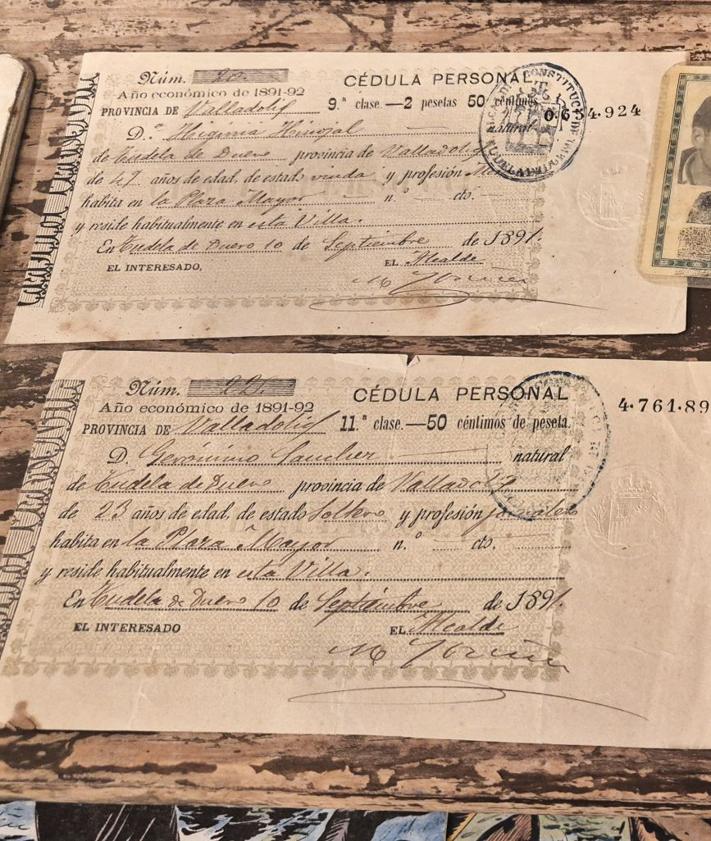 Núm. 20.
CÉDULA PERSONAL
Año económico de 1891-92
PROVINCIA DE Valladolid 9.ª clase.—2 pesetas 50 céntimos
D.ª Higinia Hinojal natural
de Tudela de Duero provincia de Valladolid
de 47 años de edad, de estado viuda y profesión
habita en la Plaza Mayor n.º cto.
y reside habitualmente en esta Villa.
En Tudela de Duero 10 de Septiembre de 1891.
EL INTERESADO, EL Alcalde
Núm. 221.
CÉDULA PERSONAL
4.761.89
Año económico de 1891-92
PROVINCIA DE Valladolid 11.ª clase.—50 céntimos de peseta.
D. Geronimo Sanchez natural
de Tudela de Duero provincia de Valladolid
de 23 años de edad, de estado Soltero y profesión jornalero
habita en la Plaza Mayor n.º cto.
y reside habitualmente en esta Villa.
En Tudela de Duero 10 de Septiembre de 1891.
EL INTERESADO EL Alcalde